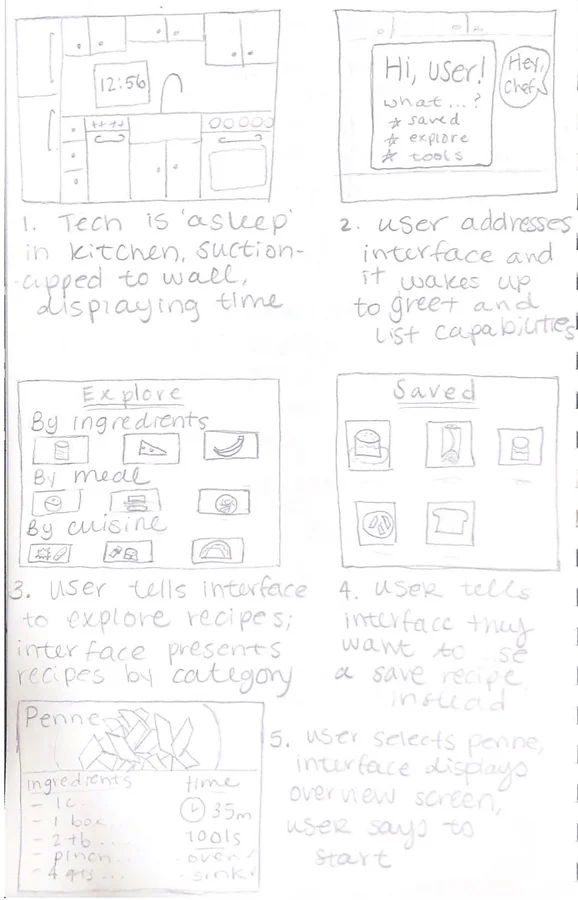 12:56
1. Tech is 'asleep'
in kitchen, suction-
-cupped to wall,
displaying time
Hi, user!
what...?
☆ saved
☆ explore
☆ tools
Hey,
chef
2. user addresses
interface and
it wakes up
to greet and
list capabilities
Explore
By ingredients
By meal
By cuisine
3. user tells interface
to explore recipes;
interface presents
recipes by category
Saved
4. user tells
interface they
want to se
a save recipe
instead
Penne
ingredients
- 1c..
- 1 box...
- 2 tb...
- pinch...
- 4 qts...
time
35m
tools
- oven
- sink
5. user selects penne,
interface displays
overview screen,
user says to
start